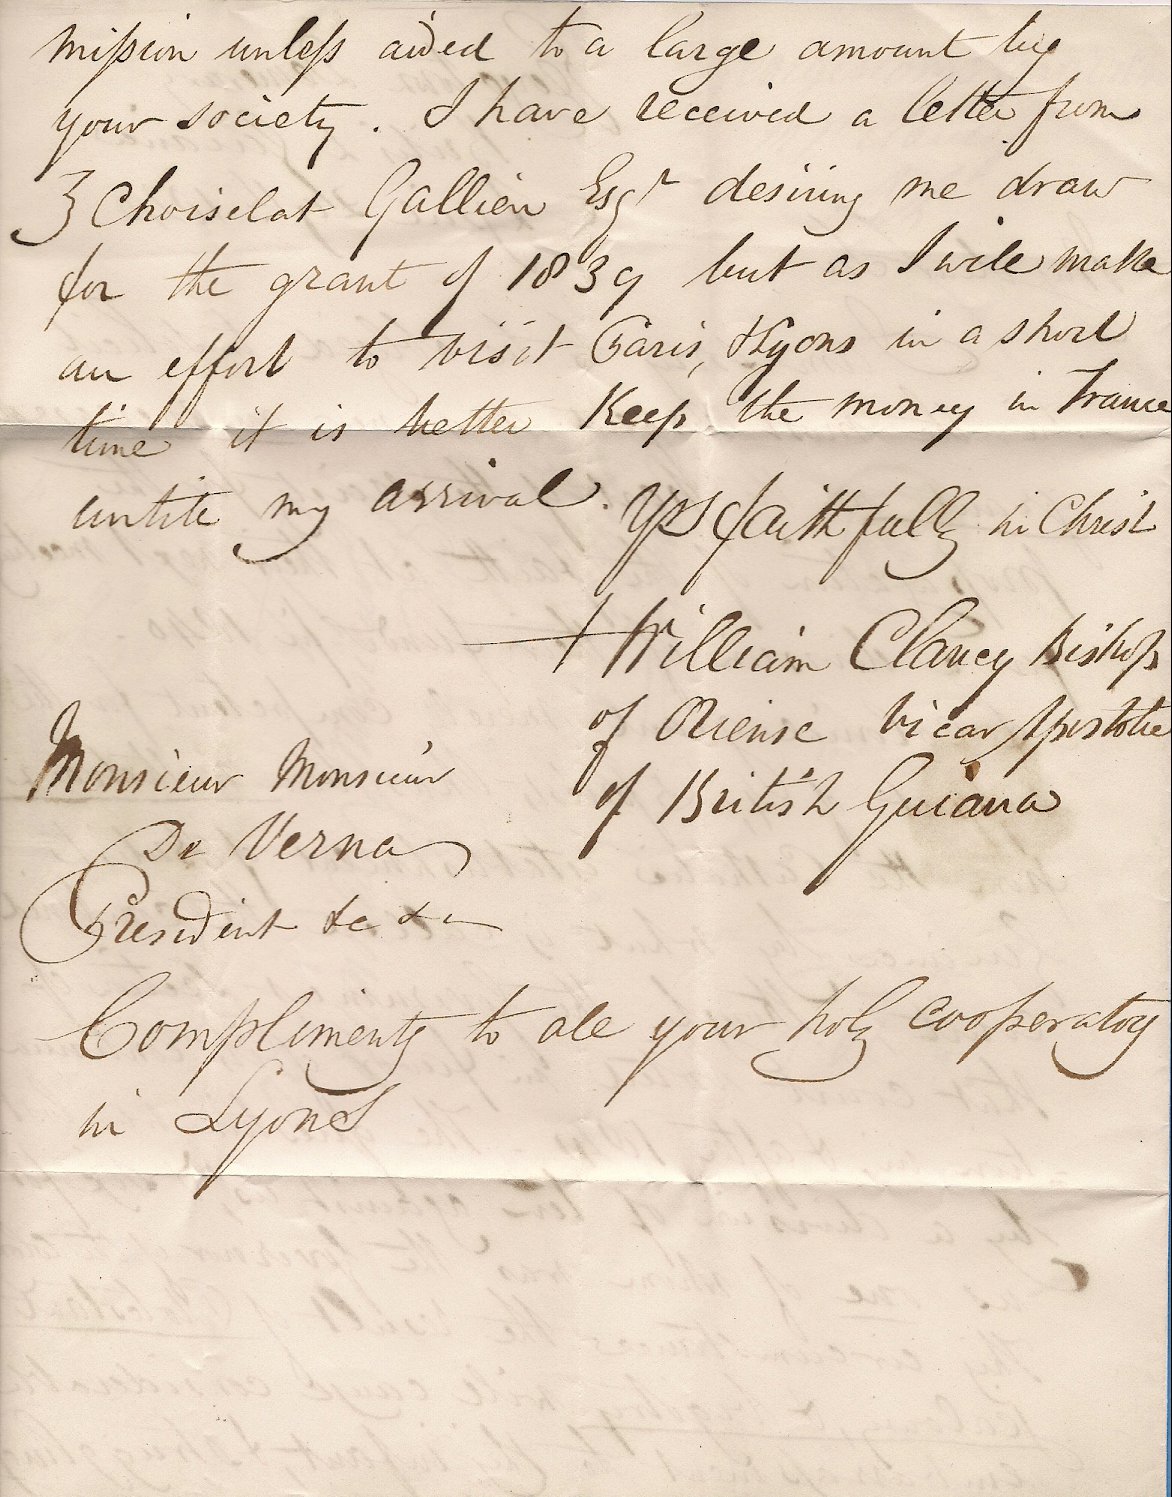 mission unless aided to a large amount by
your society. I have received a letter from
Choiselat Gallien Esqr desiring me draw
for the grant of 1839 but as I will make
an effort to visit Paris, & Lyons in a short
time it is better Keep the money in France
until my arrival. Yrs faithfully in Christ
† William Clancy Bishop
of Oriense Vicar Apostolic
of British Guiana
Monsieur Monsieur
De Verna
President &c &c
Compliments to all your holy cooperators
in Lyons